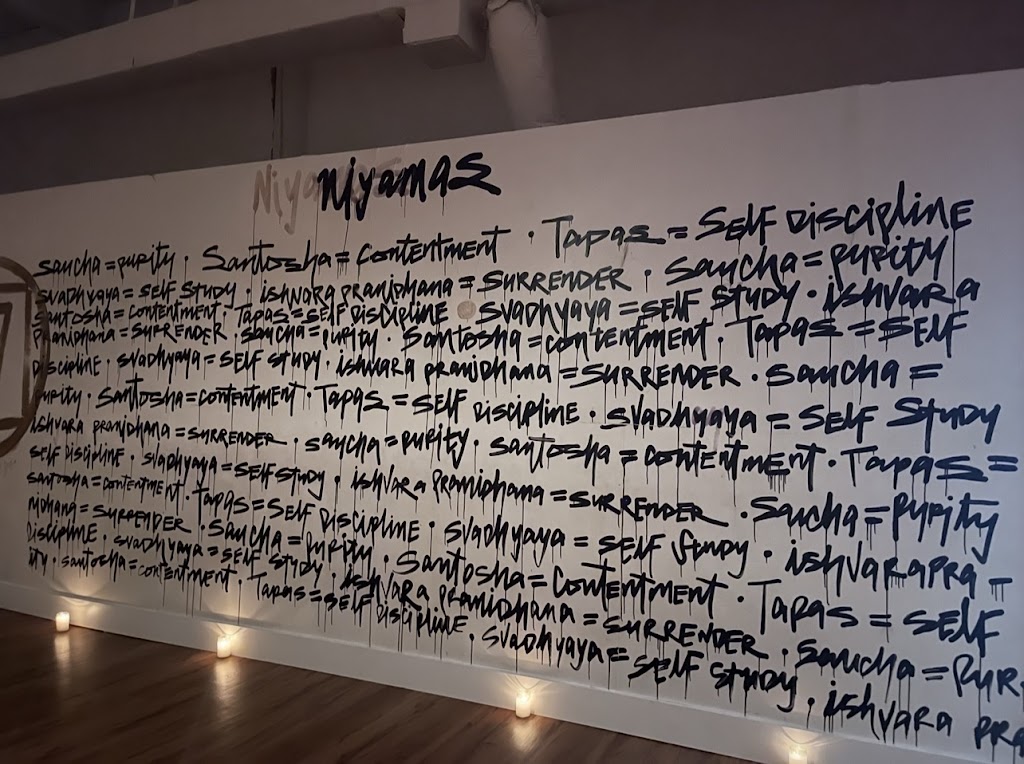 Niya Niyamas
saucha=purity · Santosha=contentment · Tapas=SELF DISCIPLINE
svadhyaya=SELF STUDY · ishvara pranidhana=SURRENDER · saucha=purity
santosha=contentment · Tapas=SELF DISCIPLINE · svadhyaya=SELF STUDY · ishvara
pranidhana=SURRENDER · saucha=purity · Santosha=contentment · Tapas=SELF
DISCIPLINE · svadhyaya=SELF STUDY · ishvara pranidhana=SURRENDER · saucha=
purity · Santosha=contentment · Tapas=SELF DISCIPLINE · svadhyaya=SELF STUDY
ishvara pranidhana=SURRENDER · saucha=purity · santosha=contentment · Tapas=
SELF DISCIPLINE · svadhyaya=SELF STUDY · ishvara pranidhana=SURRENDER · saucha=purity
santosha=contentment · Tapas=SELF DISCIPLINE · svadhyaya=SELF STUDY · ishvara pra-
nidhana=SURRENDER · saucha=purity · Santosha=contentment · Tapas=SELF
DISCIPLINE · svadhyaya=SELF STUDY · ishvara pranidhana=SURRENDER · saucha=pur-
ity · santosha=contentment · Tapas=SELF DISCIPLINE · svadhyaya=SELF STUDY · ishvara pra